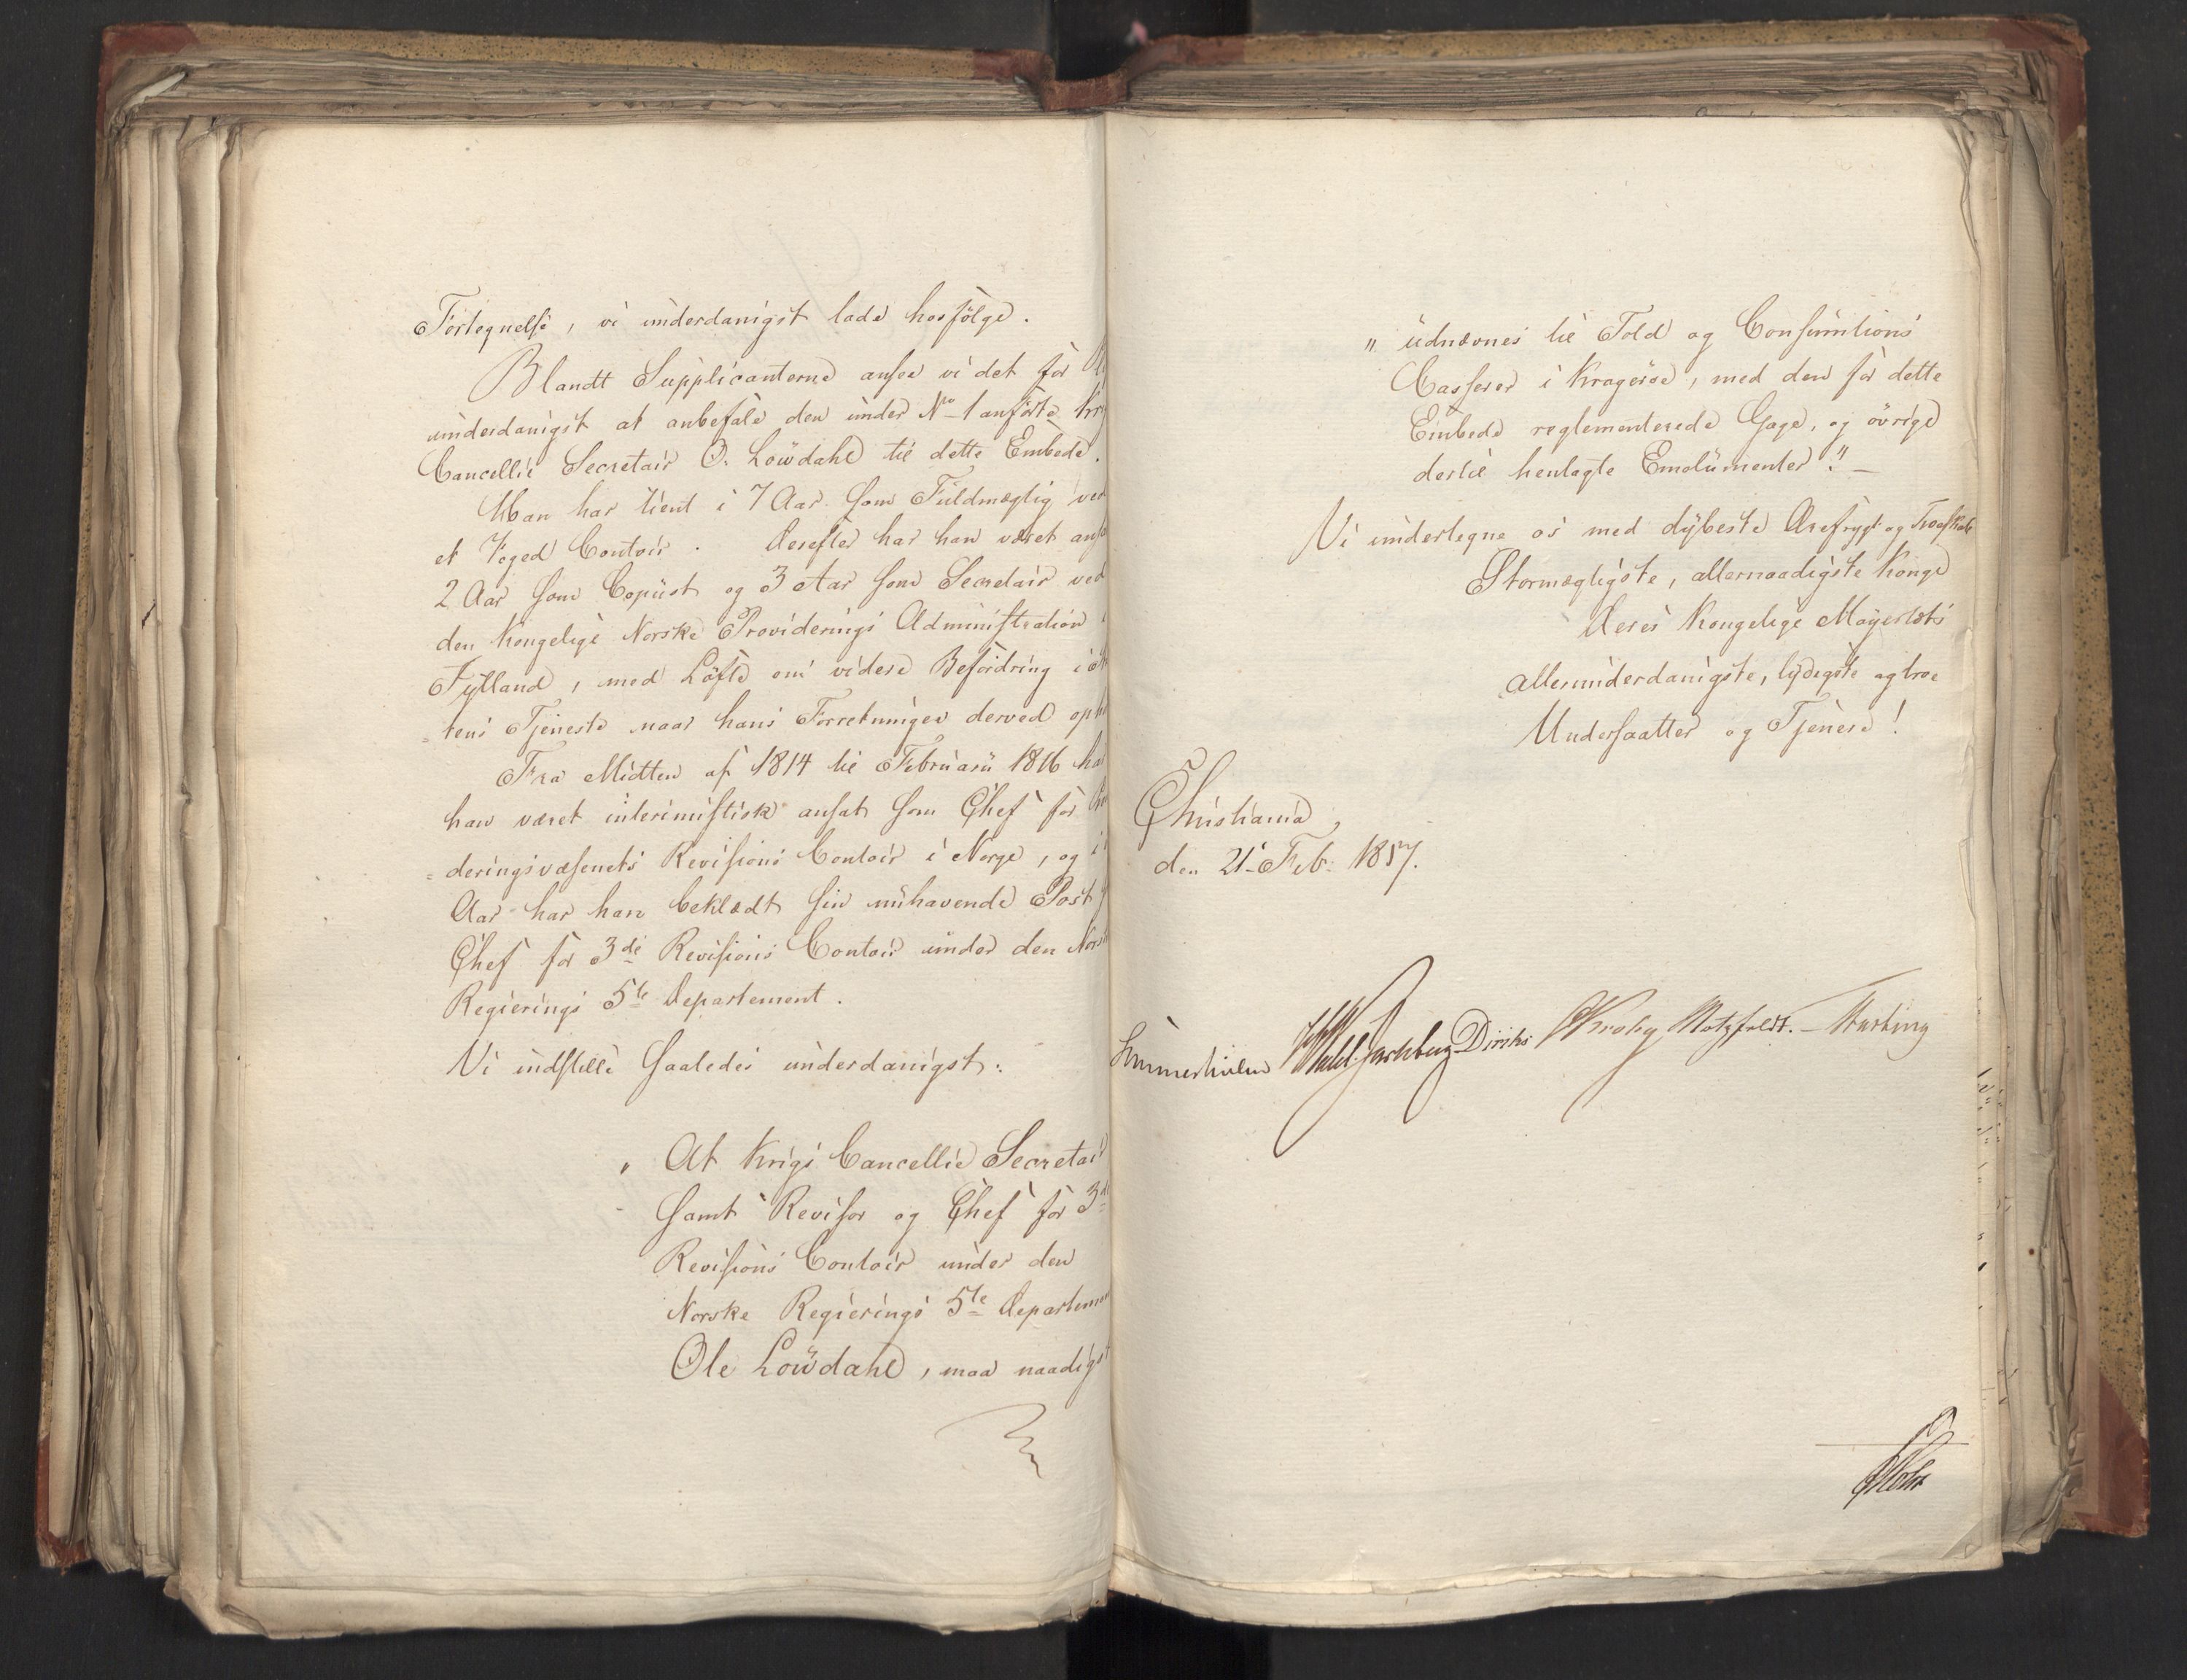 Fortegnelse, vi underdanigst lade hosfölge.
Blandt Supplicanterne ansee vi det for
underdanigst at anbefale den under No 1 anförte
Cancellie Secretair O. Löwdahl til dette Embede.
Han har tient i 7 Aar som Fuldmægtig ved
et Foged Contoir. Derefter har han været
2 Aar som Copiist og 3 Aar som Secretair ved
den Kongelige Norske Provideringi Administration i
Jylland, med Löfte om videre Befordring i
=tens Tjeneste naar hans Forretninger derved
Fra Midten af 1814 til Februarii 1816 har
han været interimistisk ansat som Chef for
=deringsvæsenets Revisions Contoir i Norge, og i
Aar har han beklædt sin nuhavende Post
Chef for 3die Revisions Contoir under den
Regierings 5te Departement.
Vi indstille saaledes underdanigst:
" At Krigs Cancellie Secretair
samt Revisor og Chef for 3die
Revisions Contoir under den
Norske Regierings 5te Departement
Ole Löwdahl, maa naadigst
" udnævnes til Told og Consumtions
Casserer i Krageröe, med den for dette
Embede reglementerede Gage, og övrige
dertil henlagte Emolumenter." _
Vi undertegne os med dybeste Ærefrygt og Troeskab
Stormægtigste, allernaadigste Konge
Deres Kongelige Mayestæts
allerunderdanigste, lydigste og troe
Undersaatter og Tjenere!
Christiania,
den 21 Feb: 1817.
Sommerhielm Diriks Krohg Motzfeldt.